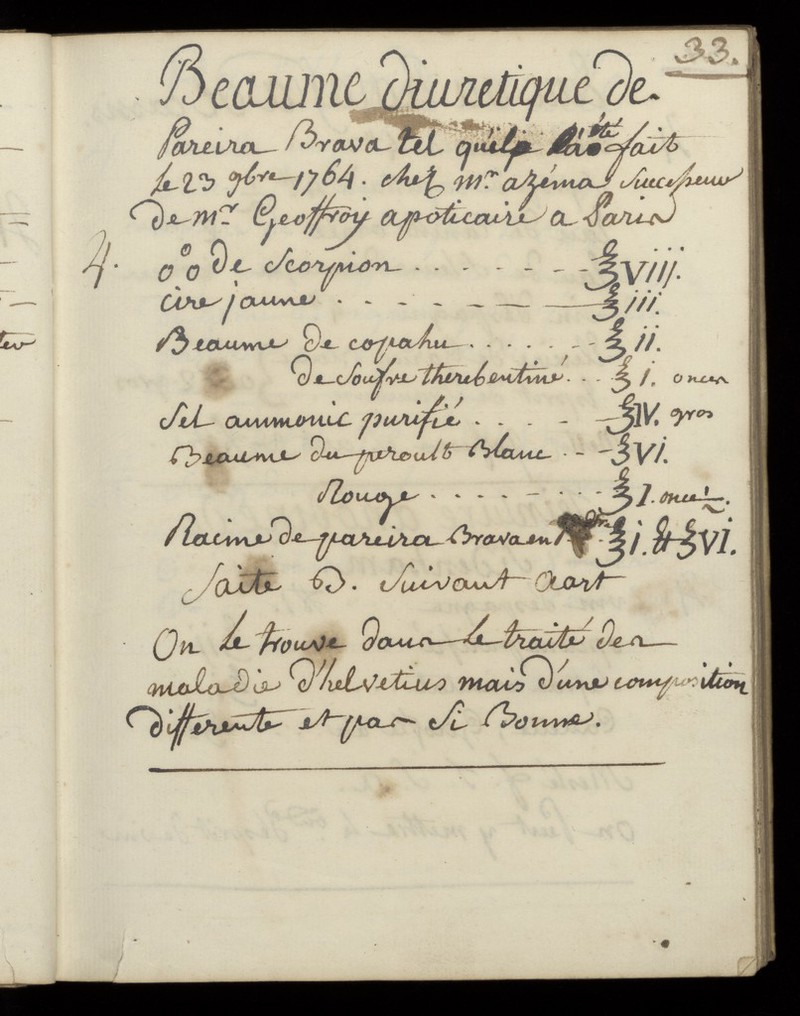 33.
Beaume diuretique de
Pareira Brava tel qu'il a été fait
le 23 9bre 1764. chez mr. azéma Successeur
de mr. Geoffroy apoticaire a Paris
4. o°o de Scorpion ℥VIII.
cire jaune ℥iii.
Beaume de copahu ℥ii.
de soufre therebentiné ℥i. onces
Sel ammonic purifié ℥IV. gros
Beaume du peroult Blanc ℥VI.
Rouge ℥I. once
Racine de pareira Brava en ℥i. & ℥VI.
faite B. suivant aart
On le trouve dans le traité des
maladie d'helvetius mais d'une composition
differente et pas si Bonne.